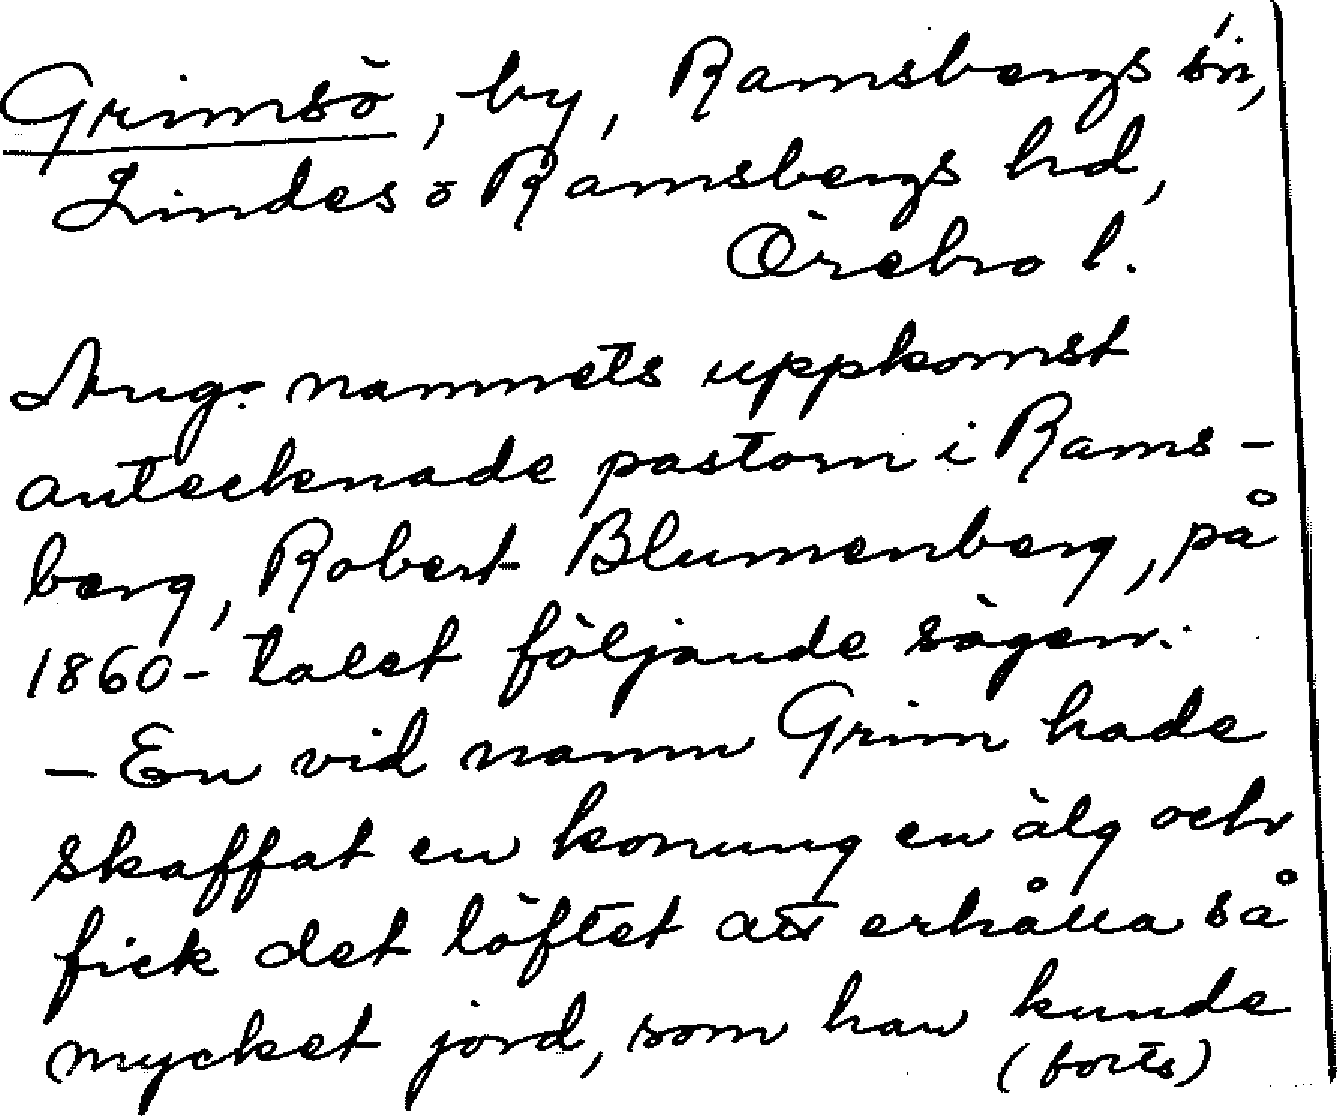 Grimsö, by, Ramsbergs sn,
Lindes o Ramsbergs hd,
Örebro l.
Ang. namnets uppkomst
antecknade pastorn i Rams-
berg, Robert Blumenberg, på
1860-talet följande sägen:
- En vid namn Grim hade
skaffat en konung en älg och
fick det löftet att erhålla så
mycket jord, som han kunde
(forts)